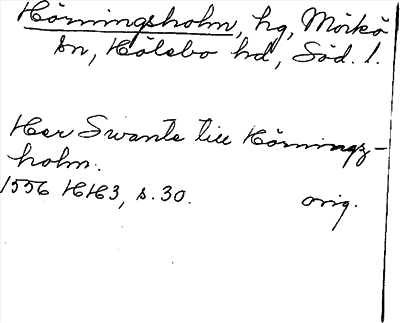 Hörningsholm, hg, Mörkö
sn, Hölebo hd, Söd. l.
Her Swante till Hörningz-
holm.
1556 HH3, s. 30. orig.